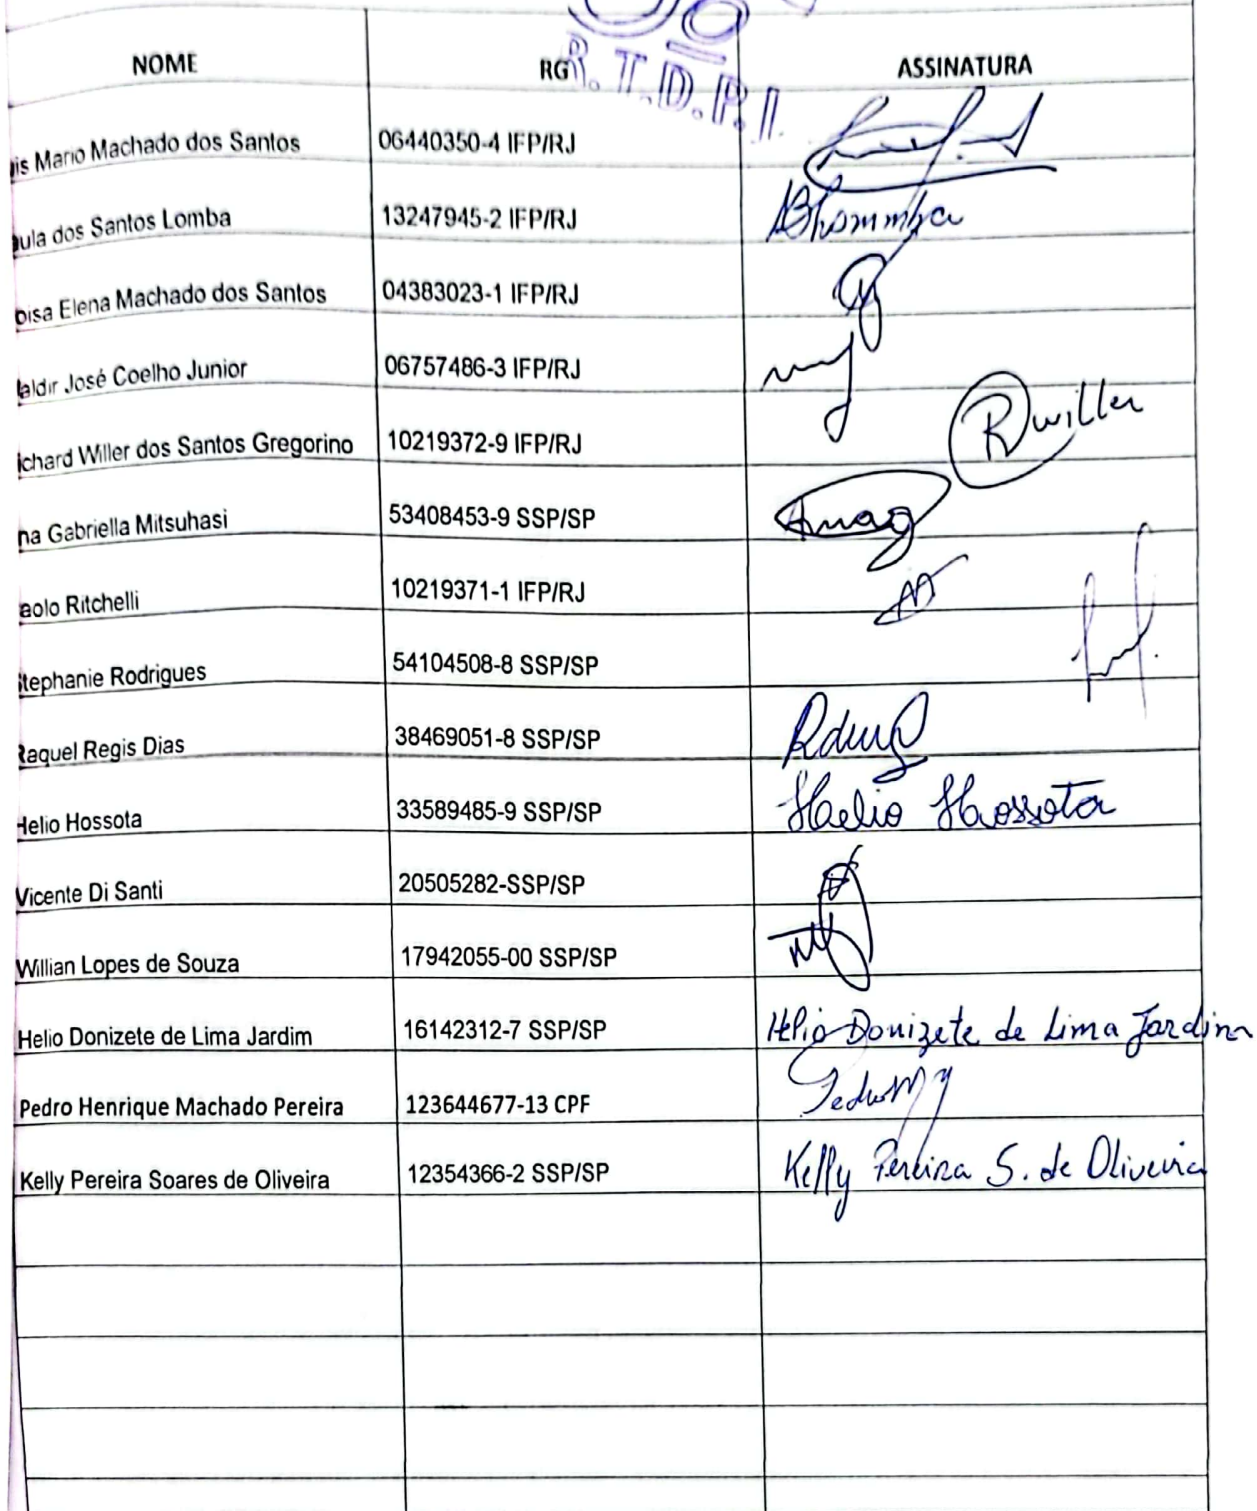 R.T.D.P.J.
NOME RG ASSINATURA
is Mario Machado dos Santos 06440350-4 IFP/RJ
ula dos Santos Lomba 13247945-2 IFP/RJ
oisa Elena Machado dos Santos 04383023-1 IFP/RJ
aldir José Coelho Junior 06757486-3 IFP/RJ
ichard Willer dos Santos Gregorino 10219372-9 IFP/RJ Rwiller
na Gabriella Mitsuhasi 53408453-9 SSP/SP
aolo Ritchelli 10219371-1 IFP/RJ
Stephanie Rodrigues 54104508-8 SSP/SP
Raquel Regis Dias 38469051-8 SSP/SP
Helio Hossota 33589485-9 SSP/SP Haelio Hossota
Vicente Di Santi 20505282-SSP/SP
Willian Lopes de Souza 17942055-00 SSP/SP
Helio Donizete de Lima Jardim 16142312-7 SSP/SP Helio Donizete de Lima Jardim
Pedro Henrique Machado Pereira 123644677-13 CPF
Kelly Pereira Soares de Oliveira 12354366-2 SSP/SP Kelly Pereira S. de Oliveira